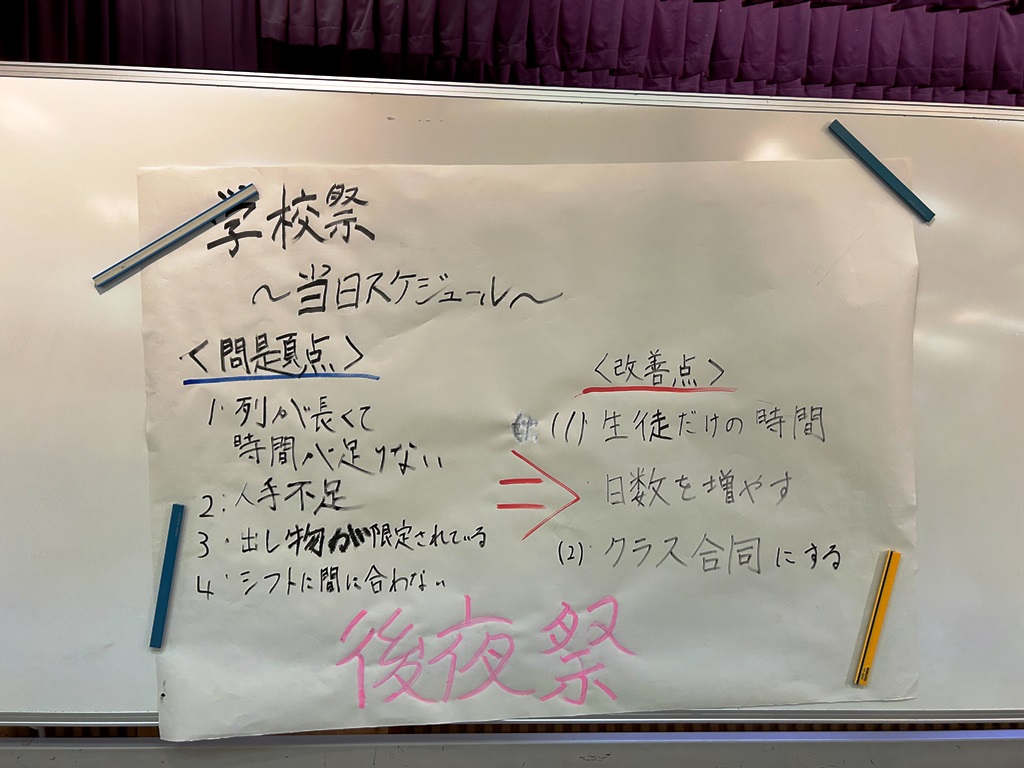 学校祭
～当日スケジュール～
〈問題点〉
1. 列が長くて
時間が足りない
2. 人手不足
3. 出し物が限定されている
4. シフトに間に合わない
〈改善点〉
(1) 生徒だけの時間
日数を増やす
(2) クラス合同にする
後夜祭